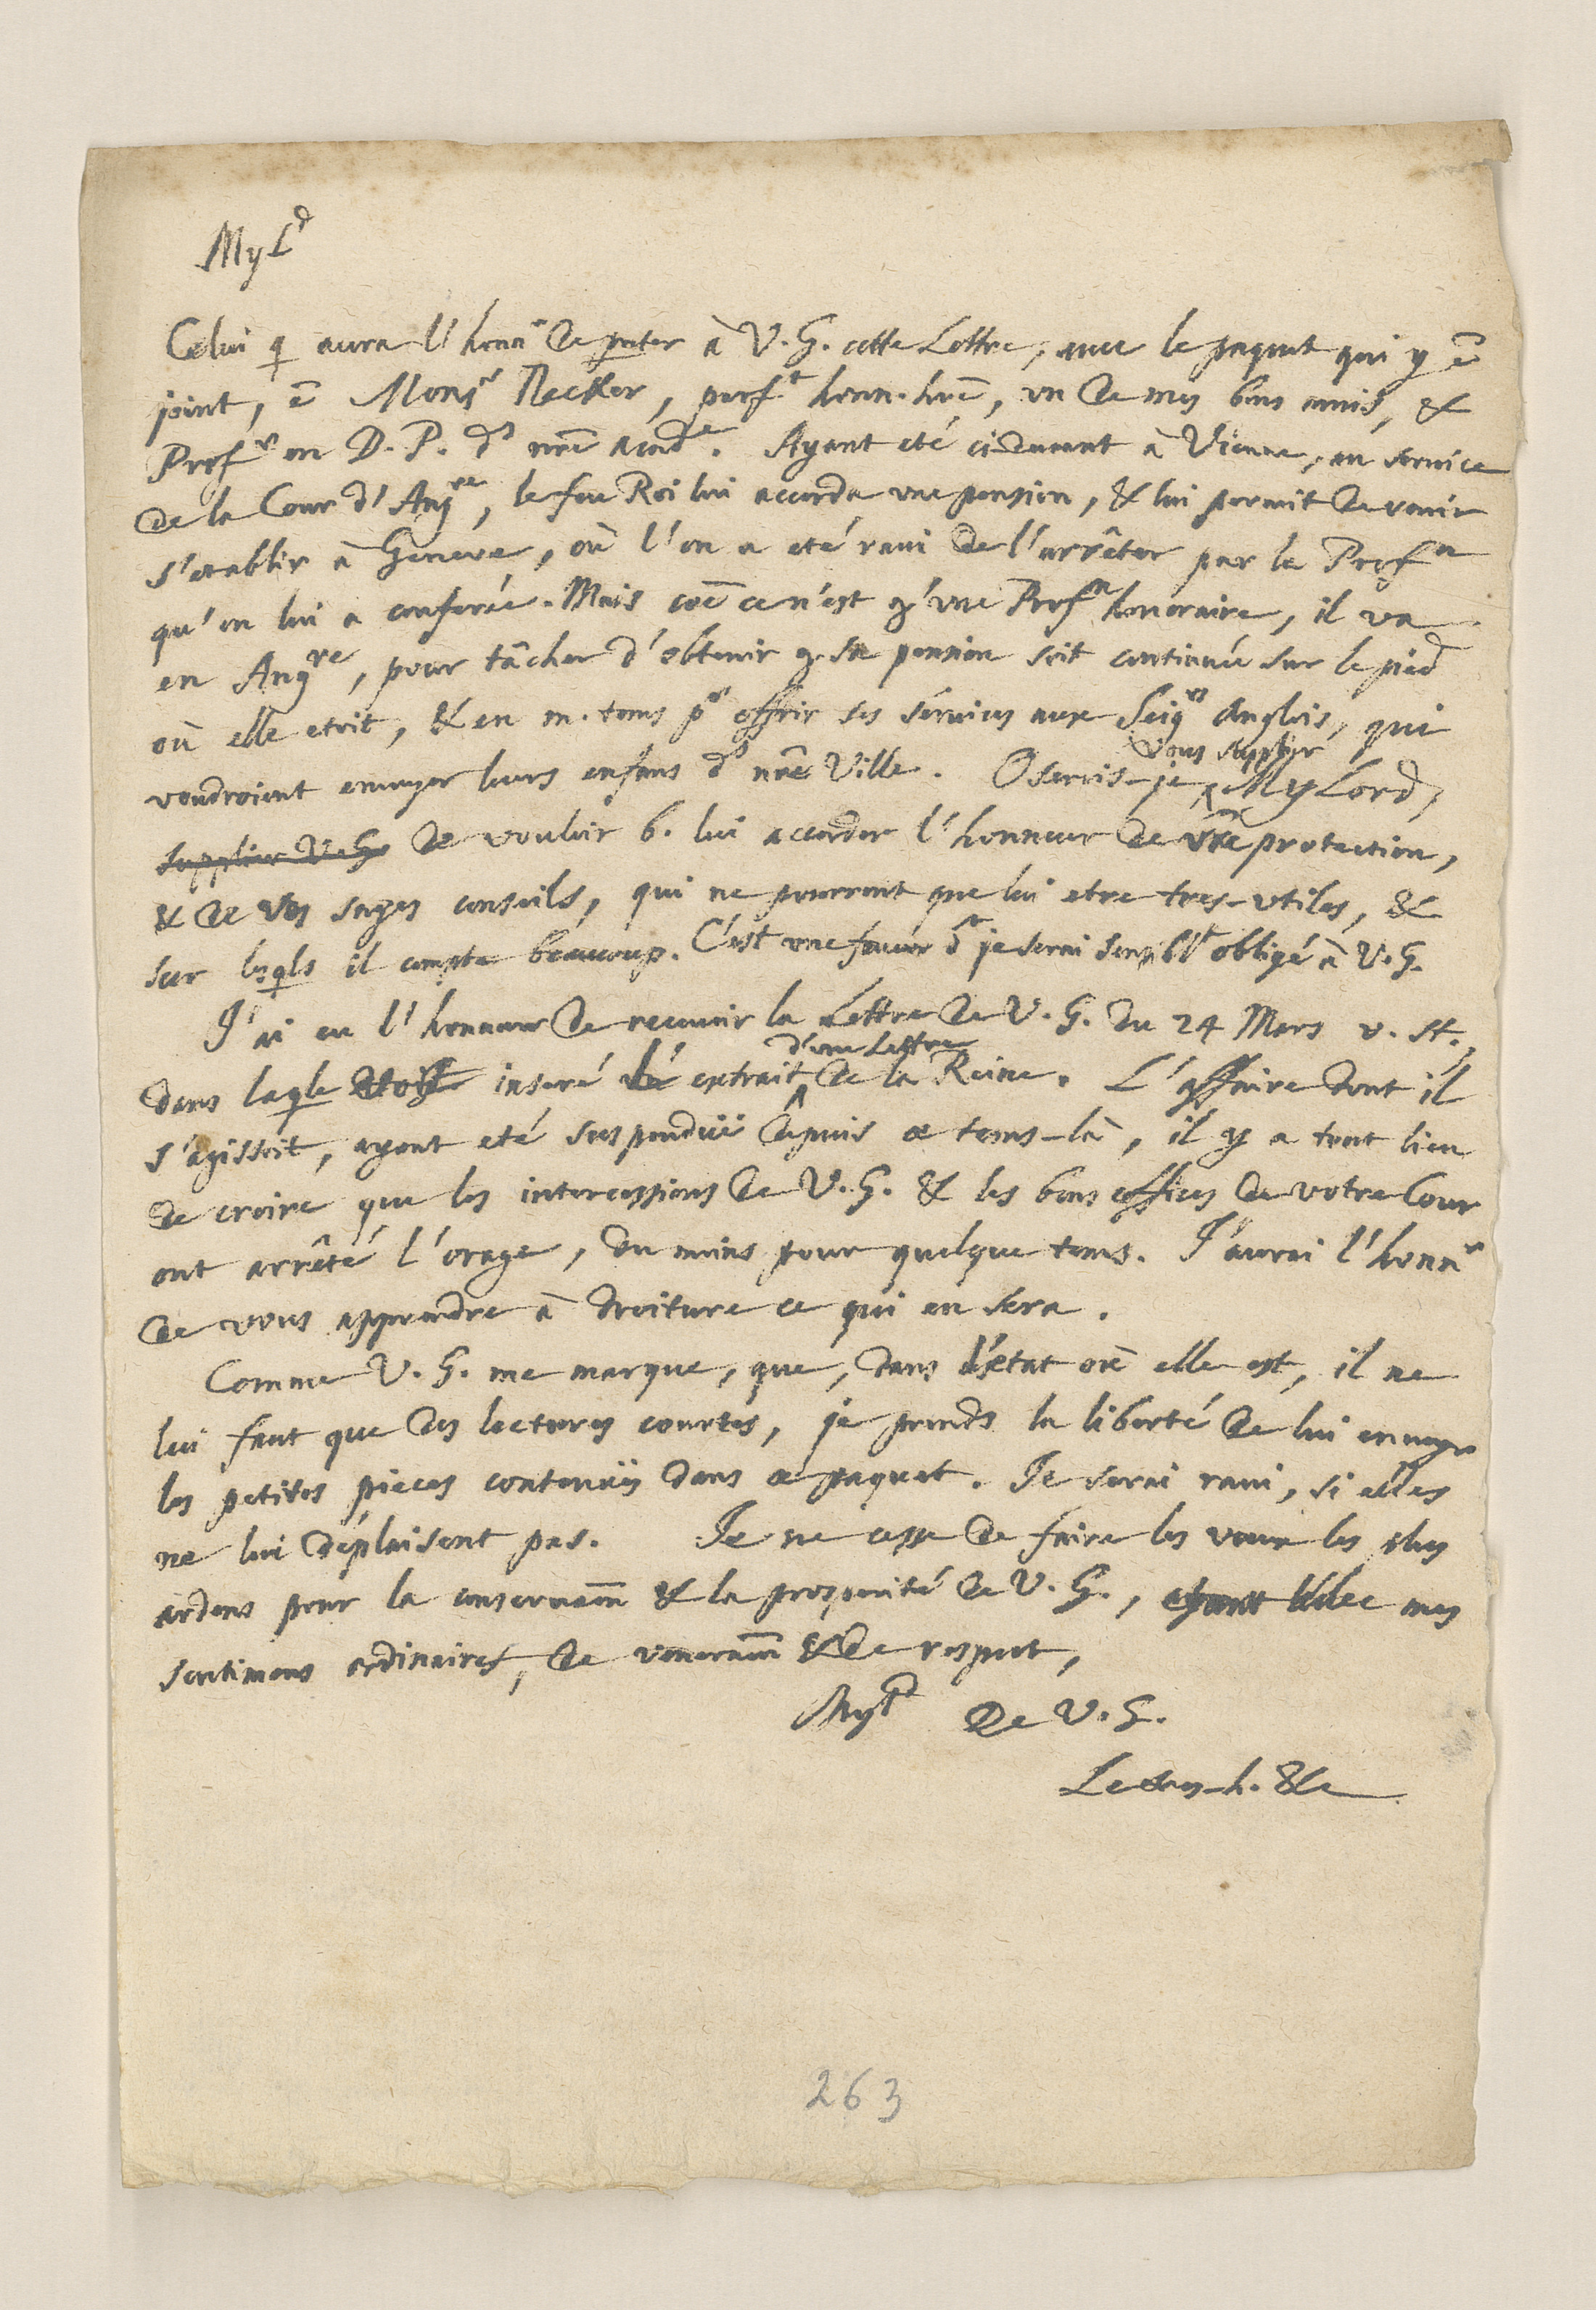 My L^d
Celui q̃ aura l'honn^r de p̱ter à V. G. cette Lettre, avec le paquet qui y ẽ
joint, ẽ Mons^r Necker, parf^t honn. hom̃e, un de mes bons amis, &
Prof^r en D. P. d^s nr̃e Acad^e. Ayant eté ci-devant à Vienne, au service
de la Cour d'Ang^re, le feu Roi lui accorda une pension, & lui permit de venir
s'etablir à Geneve, où l'on a eté ravi de l'arrêter par la Prof^n
qu'on lui a conferée. Mais com̃e ce n'est q'une Prof^n honoraire, il va
en Ang^re, pour tâcher d'obtenir q. sa pension soit continuée sur le pied
où elle etoit, & en m. tems p^r offrir ses services aux Seig^rs Anglois, qui
voudroient envoyer leurs enfans d^s nr̃e Ville. Oserois-je vous supplier My Lord,
supplier V. G. de vouloir b. lui accorder l'honneur de vr̃e protection,
& de vos sages conseils, qui ne pourront que lui etre tres-utiles, &
sur lesq̃ls il compte beaucoup. C'est une faveur d^t je serai sensibl^t obligé à V. G.
J'ai eu l'honneur de recevoir la Lettre de V. G. du 24 Mars v. st.,
dans laq̃le etoit inseré extrait d'une Lettre de la Reine. L'affaire dont il
s'agissoit, ayant eté suspenduë depuis ce tems-là, il y a tout lieu
de croire que les intercessions de V. G. & les bons offices de votre Cour
ont arrêté l'orage, du moins pour quelque tems. J'aurai l'honn^r
de vous apprendre à droiture ce qui en sera.
Comme V. G. me marque, que, dans l'état où elle est, il ne
lui faut que des lectures courtes, je prends la liberté de lui envoyer
les petites pieces contenuës dans ce paquet. Je serai ravi, si elles
ne lui déplaisent pas. Je ne cesse de faire les vœux les plus
ardens pour la conservaõn & la prosperité de V. G., mes
sentimens ordinaires, de veneraõn & de respect,
My L^d De V. G.
Le tres-h. &c
263